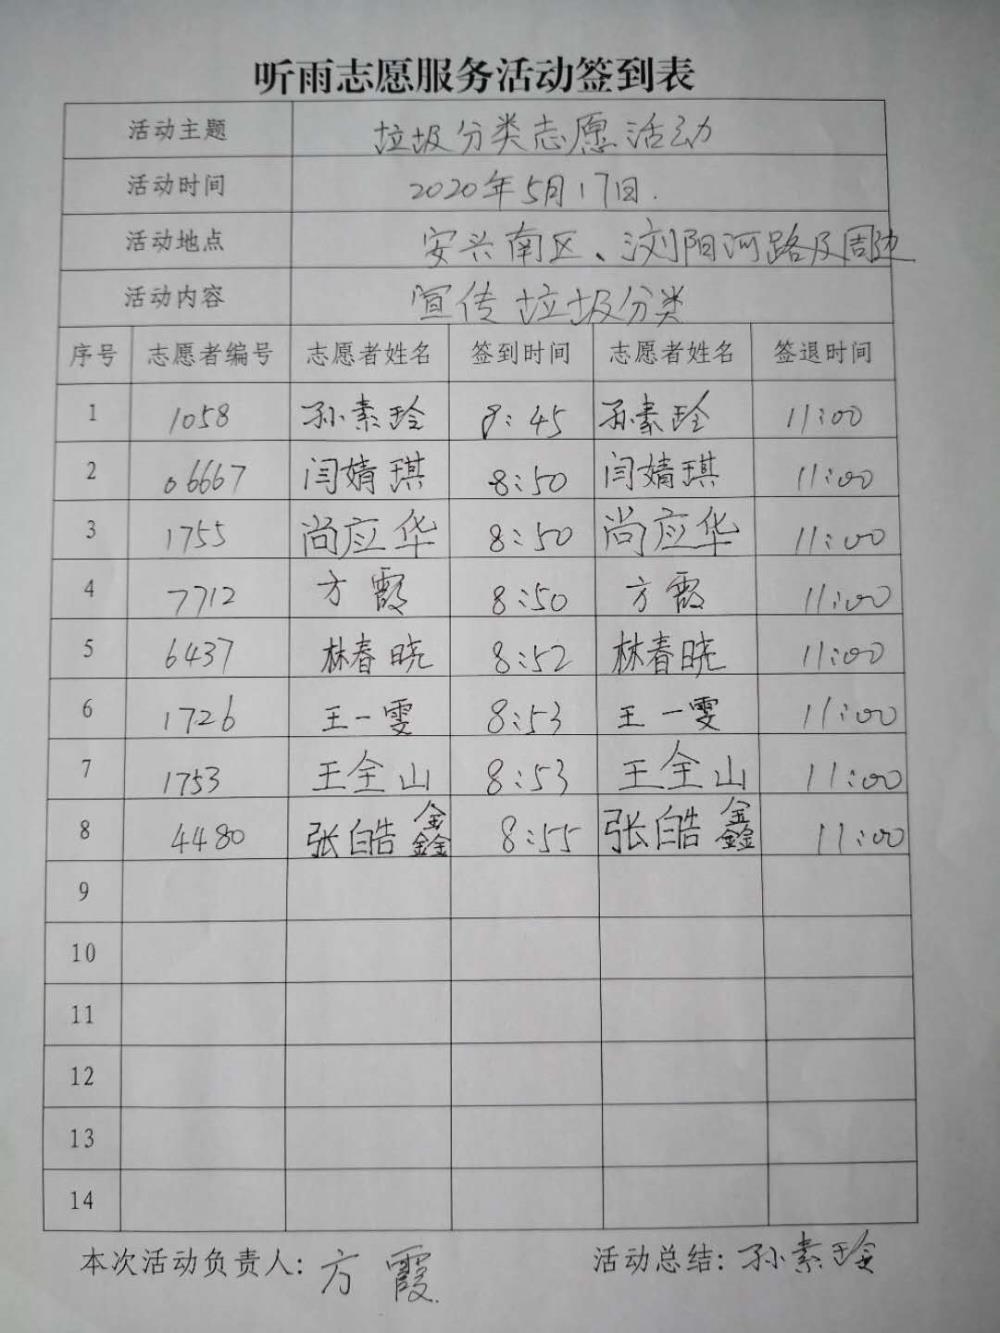 听雨志愿服务活动签到表
活动主题 垃圾分类志愿活动
活动时间 2020年5月17日.
活动地点 安兴南区、浏阳河路及周边
活动内容 宣传垃圾分类
序号 志愿者编号 志愿者姓名 签到时间 志愿者姓名 签退时间
1 1058 孙素玲 8:45 孙素玲 11:00
2 06667 闫婧琪 8:50 闫婧琪 11:00
3 1755 尚应华 8:50 尚应华 11:00
4 7712 方霞 8:50 方霞 11:00
5 6437 林春晓 8:52 林春晓 11:00
6 1726 王一雯 8:53 王一雯 11:00
7 1753 王全山 8:53 王全山 11:00
8 4480 张皓鑫 8:55 张皓鑫 11:00
9
10
11
12
13
14
本次活动负责人: 方霞 活动总结: 孙素玲